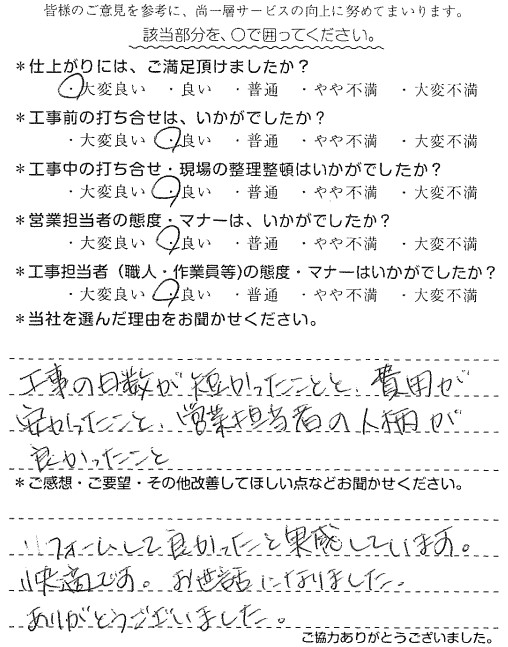 皆様のご意見を参考に、尚一層サービスの向上に努めてまいります。
該当部分を、〇で囲ってください。
*仕上がりには、ご満足頂けましたか？
・大変良い ・良い ・普通 ・やや不満 ・大変不満
*工事前の打ち合せは、いかがでしたか？
・大変良い ・良い ・普通 ・やや不満 ・大変不満
*工事中の打ち合せ・現場の整理整頓はいかがでしたか？
・大変良い ・良い ・普通 ・やや不満 ・大変不満
*営業担当者の態度・マナーは、いかがでしたか？
・大変良い ・良い ・普通 ・やや不満 ・大変不満
*工事担当者（職人・作業員等)の態度・マナーはいかがでしたか？
・大変良い ・良い ・普通 ・やや不満 ・大変不満
*当社を選んだ理由をお聞かせください。
工事の日数が短かったことと、費用が
安かったこと、営業担当者の人柄が
良かったこと
*ご感想・ご要望・その他改善してほしい点などお聞かせください。
リフォームして良かったと実感しています。
快適です。お世話になりました。
ありがとうございました。
ご協力ありがとうございました。